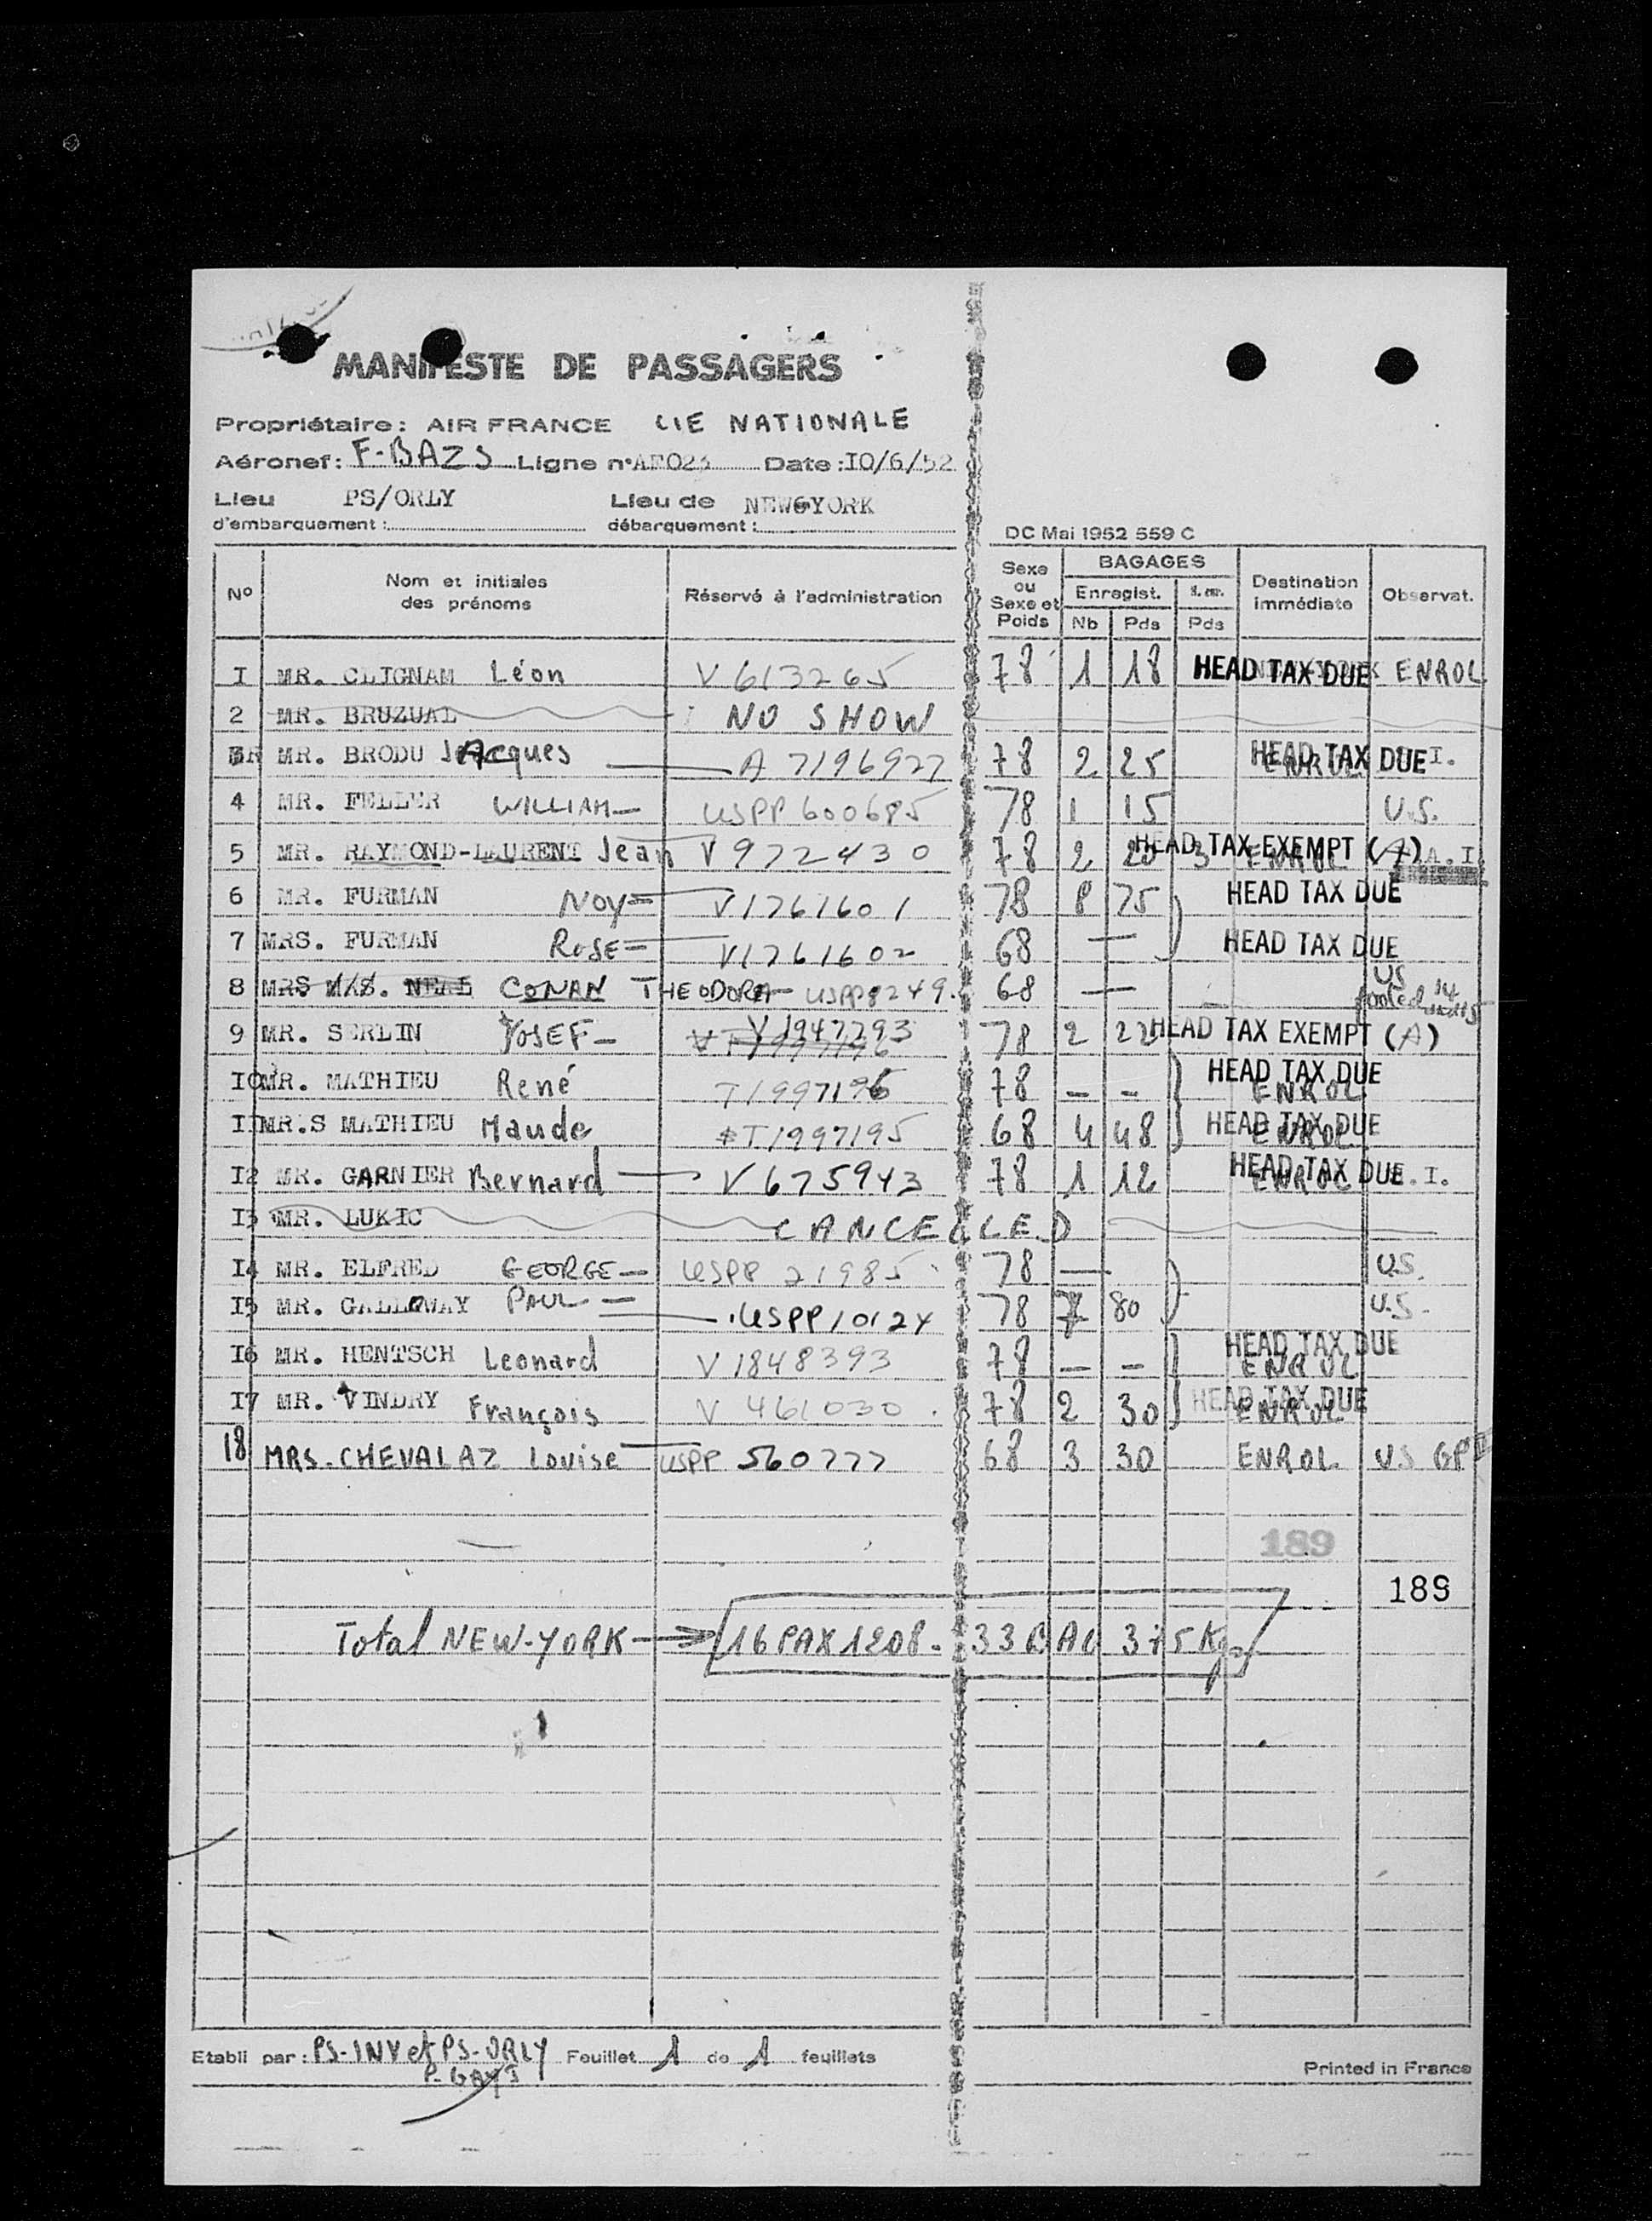 MANIFESTE DE PASSAGERS
Propriétaire: AIR FRANCE CIE NATIONALE
Aéronef: F-BAZS Ligne n° AF023 Date: I0/6/52
Lieu PS/ORLY Lieu de NEW YORK
d'embarquement: débarquement:
DC Mai 1952 559 C
Nº Nom et initiales des prénoms Réservé à l'administration Sexe ou Sexe et Poids BAGAGES Enregist. Nb Pds Pds Destination immédiate Observat.
I MR. CLIGNAM Léon V 613265 78 1 18 HEAD TAX DUE ENROL
2 MR. BRUZUAL NO SHOW
MR. BRODU JAcques A 7196927 78 2 25 HEAD TAX DUE I.
4 MR. FELLER WILLIAM USPP 600685 78 1 15 U.S.
5 MR. RAYMOND-LAURENT Jean V 972430 78 2 20 3 HEAD TAX EXEMPT (A) A.I.
6 MR. FURMAN NOY V1761601 78 8 75 HEAD TAX DUE
7 MRS. FURMAN ROSE V1761602 68 — HEAD TAX DUE
8 MRS CONAN THEODORA USPP8249. 68 — US
9 MR. SERLIN JOSEF V 1947293 78 2 22 HEAD TAX EXEMPT (A)
I0 MR. MATHIEU René T1997196 78 - - HEAD TAX DUE ENROL
II MR.S MATHIEU Maude T1997195 68 4 48 HEAD TAX DUE ENROL
I2 MR. GARNIER Bernard V 675943 78 1 12 HEAD TAX DUE ENROL I.
I3 MR. LUKIC CANCELLED
I4 MR. ELFRED GEORGE USPP 21985 78 — U.S.
I5 MR. GALLOWAY PAUL USPP10124 78 7 80 U.S.
I6 MR. HENTSCH Leonard V 1848393 78 - - HEAD TAX DUE ENROL
I7 MR. VINDRY François V 461030 78 2 30 HEAD TAX DUE ENROL
18 MRS. CHEVALAZ Louise USPP 560777 68 3 30 ENROL US GP
189
189
Total NEW-YORK → 16 PAX 1208 - 33 BAG 375 Kgs
Etabli par: PS-INV et PS-ORLY Feuillet 1 de 1 feuillets
Printed in France